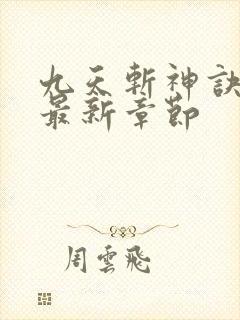 九天斬神訣
最新章節
周雲飛